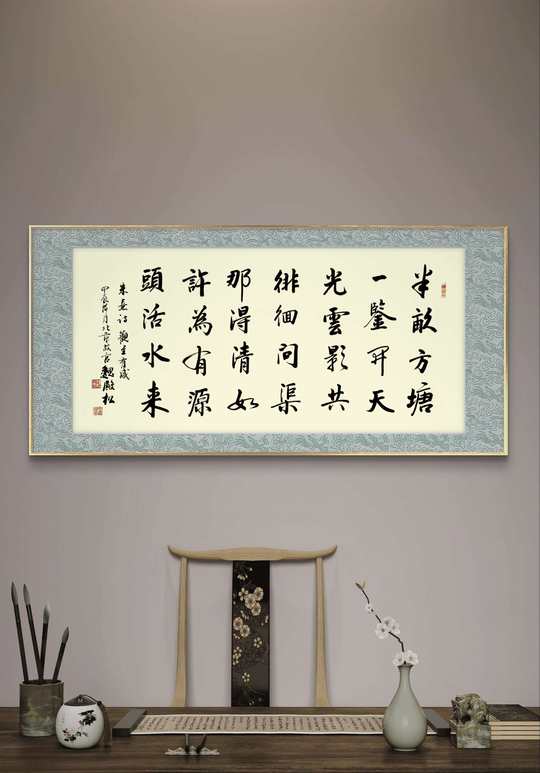 半畝方塘
一鑒開天
光雲影共
徘徊問渠
那得清如
許為有源
頭活水来
朱熹詩觀書有感
甲辰年月北京故宫魏殿松